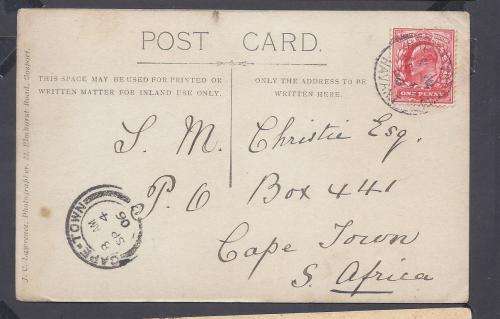 POST CARD.
THIS SPACE MAY BE USED FOR PRINTED OR
WRITTEN MATTER FOR INLAND USE ONLY.
ONLY THE ADDRESS TO BE
WRITTEN HERE.
ONE PENNY
S. M. Christie Esq.
P.O Box 441
Cape Town
S. Africa
CAPE·TOWN
8 AM
SP 4
06
J. C. Lawrence, Photographer, 21, Elmhurst Road, Gosport.